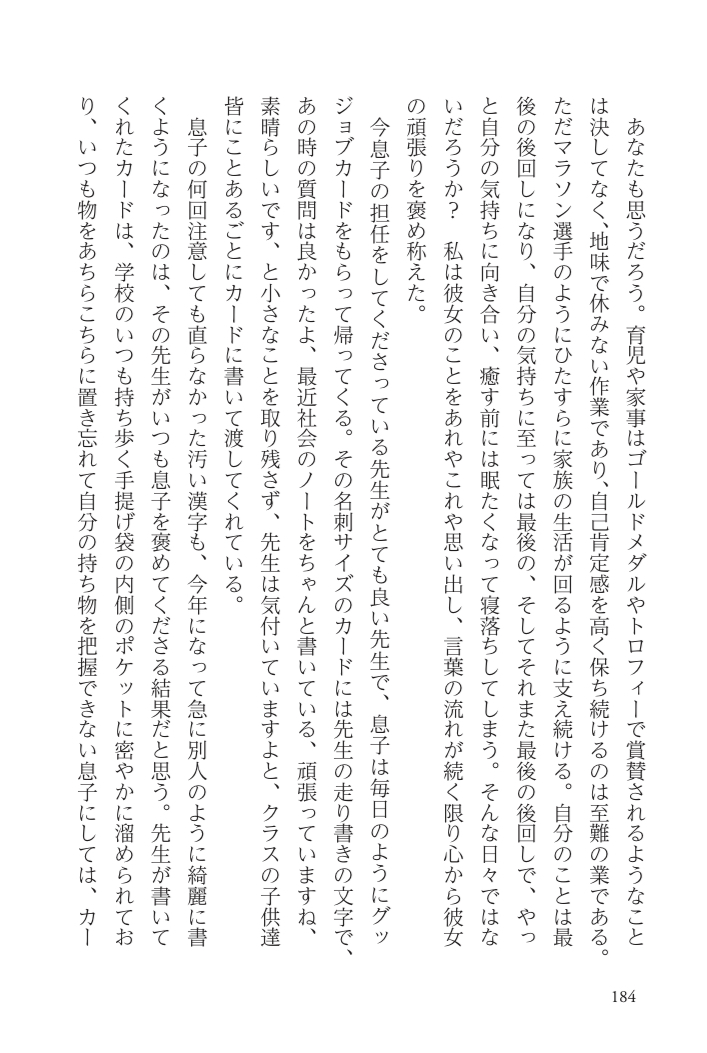 あなたも思うだろう。育児や家事はゴールドメダルやトロフィーで賞賛されるようなこと
は決してなく、地味で休みない作業であり、自己肯定感を高く保ち続けるのは至難の業である。
ただマラソン選手のようにひたすらに家族の生活が回るように支え続ける。自分のことは最
後の後回しになり、自分の気持ちに至っては最後の、そしてそれまた最後の後回しで、やっ
と自分の気持ちに向き合い、癒す前には眠たくなって寝落ちしてしまう。そんな日々ではな
いだろうか？　私は彼女のことをあれやこれや思い出し、言葉の流れが続く限り心から彼女
の頑張りを褒め称えた。
今息子の担任をしてくださっている先生がとても良い先生で、息子は毎日のようにグッ
ジョブカードをもらって帰ってくる。その名刺サイズのカードには先生の走り書きの文字で、
あの時の質問は良かったよ、最近社会のノートをちゃんと書いている、頑張っていますね、
素晴らしいです、と小さなことを取り残さず、先生は気付いていますよと、クラスの子供達
皆にことあるごとにカードに書いて渡してくれている。
息子の何回注意しても直らなかった汚い漢字も、今年になって急に別人のように綺麗に書
くようになったのは、その先生がいつも息子を褒めてくださる結果だと思う。先生が書いて
くれたカードは、学校のいつも持ち歩く手提げ袋の内側のポケットに密やかに溜められてお
り、いつも物をあちらこちらに置き忘れて自分の持ち物を把握できない息子にしては、カー
184